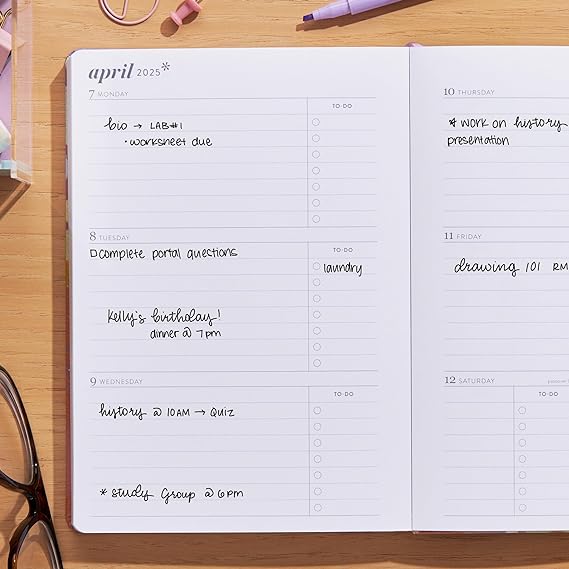 april 2025*
7 MONDAY
TO-DO
bio → LAB #1
• worksheet due
8 TUESDAY
TO-DO
□ complete portal questions
laundry
Kelly's birthday!
dinner @ 7pm
9 WEDNESDAY
TO-DO
history @ 10AM → QUIZ
* study Group @ 6pm
10 THURSDAY
* work on history
presentation
11 FRIDAY
drawing 101 RM
12 SATURDAY
TO-DO